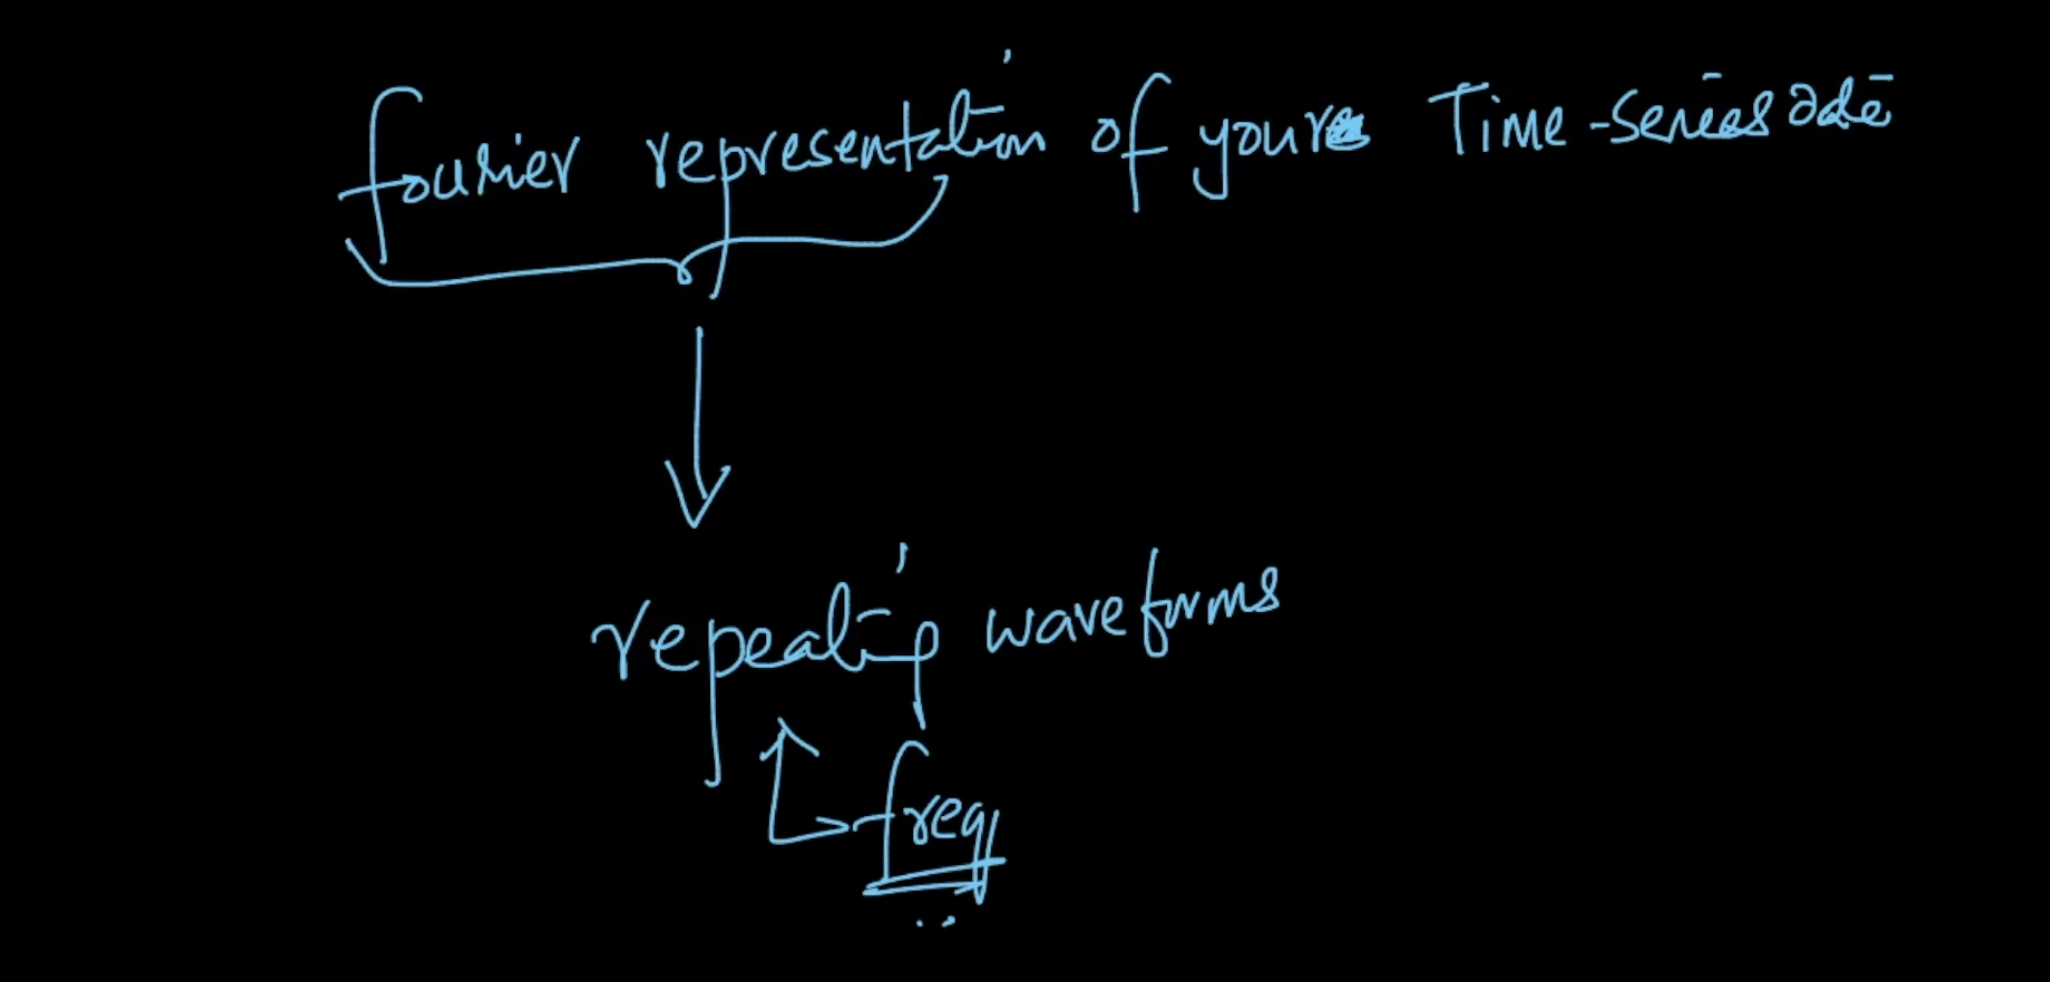 fourier representation of your Time-series
repeating waveforms
freq